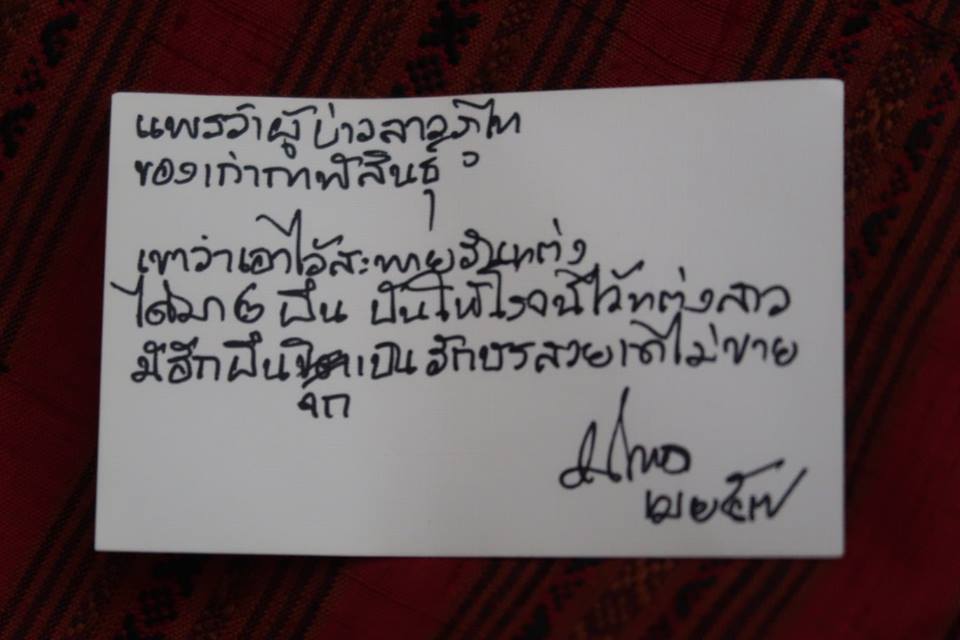 แพรวาผู้บ่าวสาวภูไท
ของเก่ากาฬสินธุ์
เขาว่าเอาไว้สะพายวันแต่ง
ได้มา 6 ผืน ปันให้โรจน์ไว้แต่งสาว
มีอีกผืน เป็นอักษรสวยแต่ไม่ขาย
จก